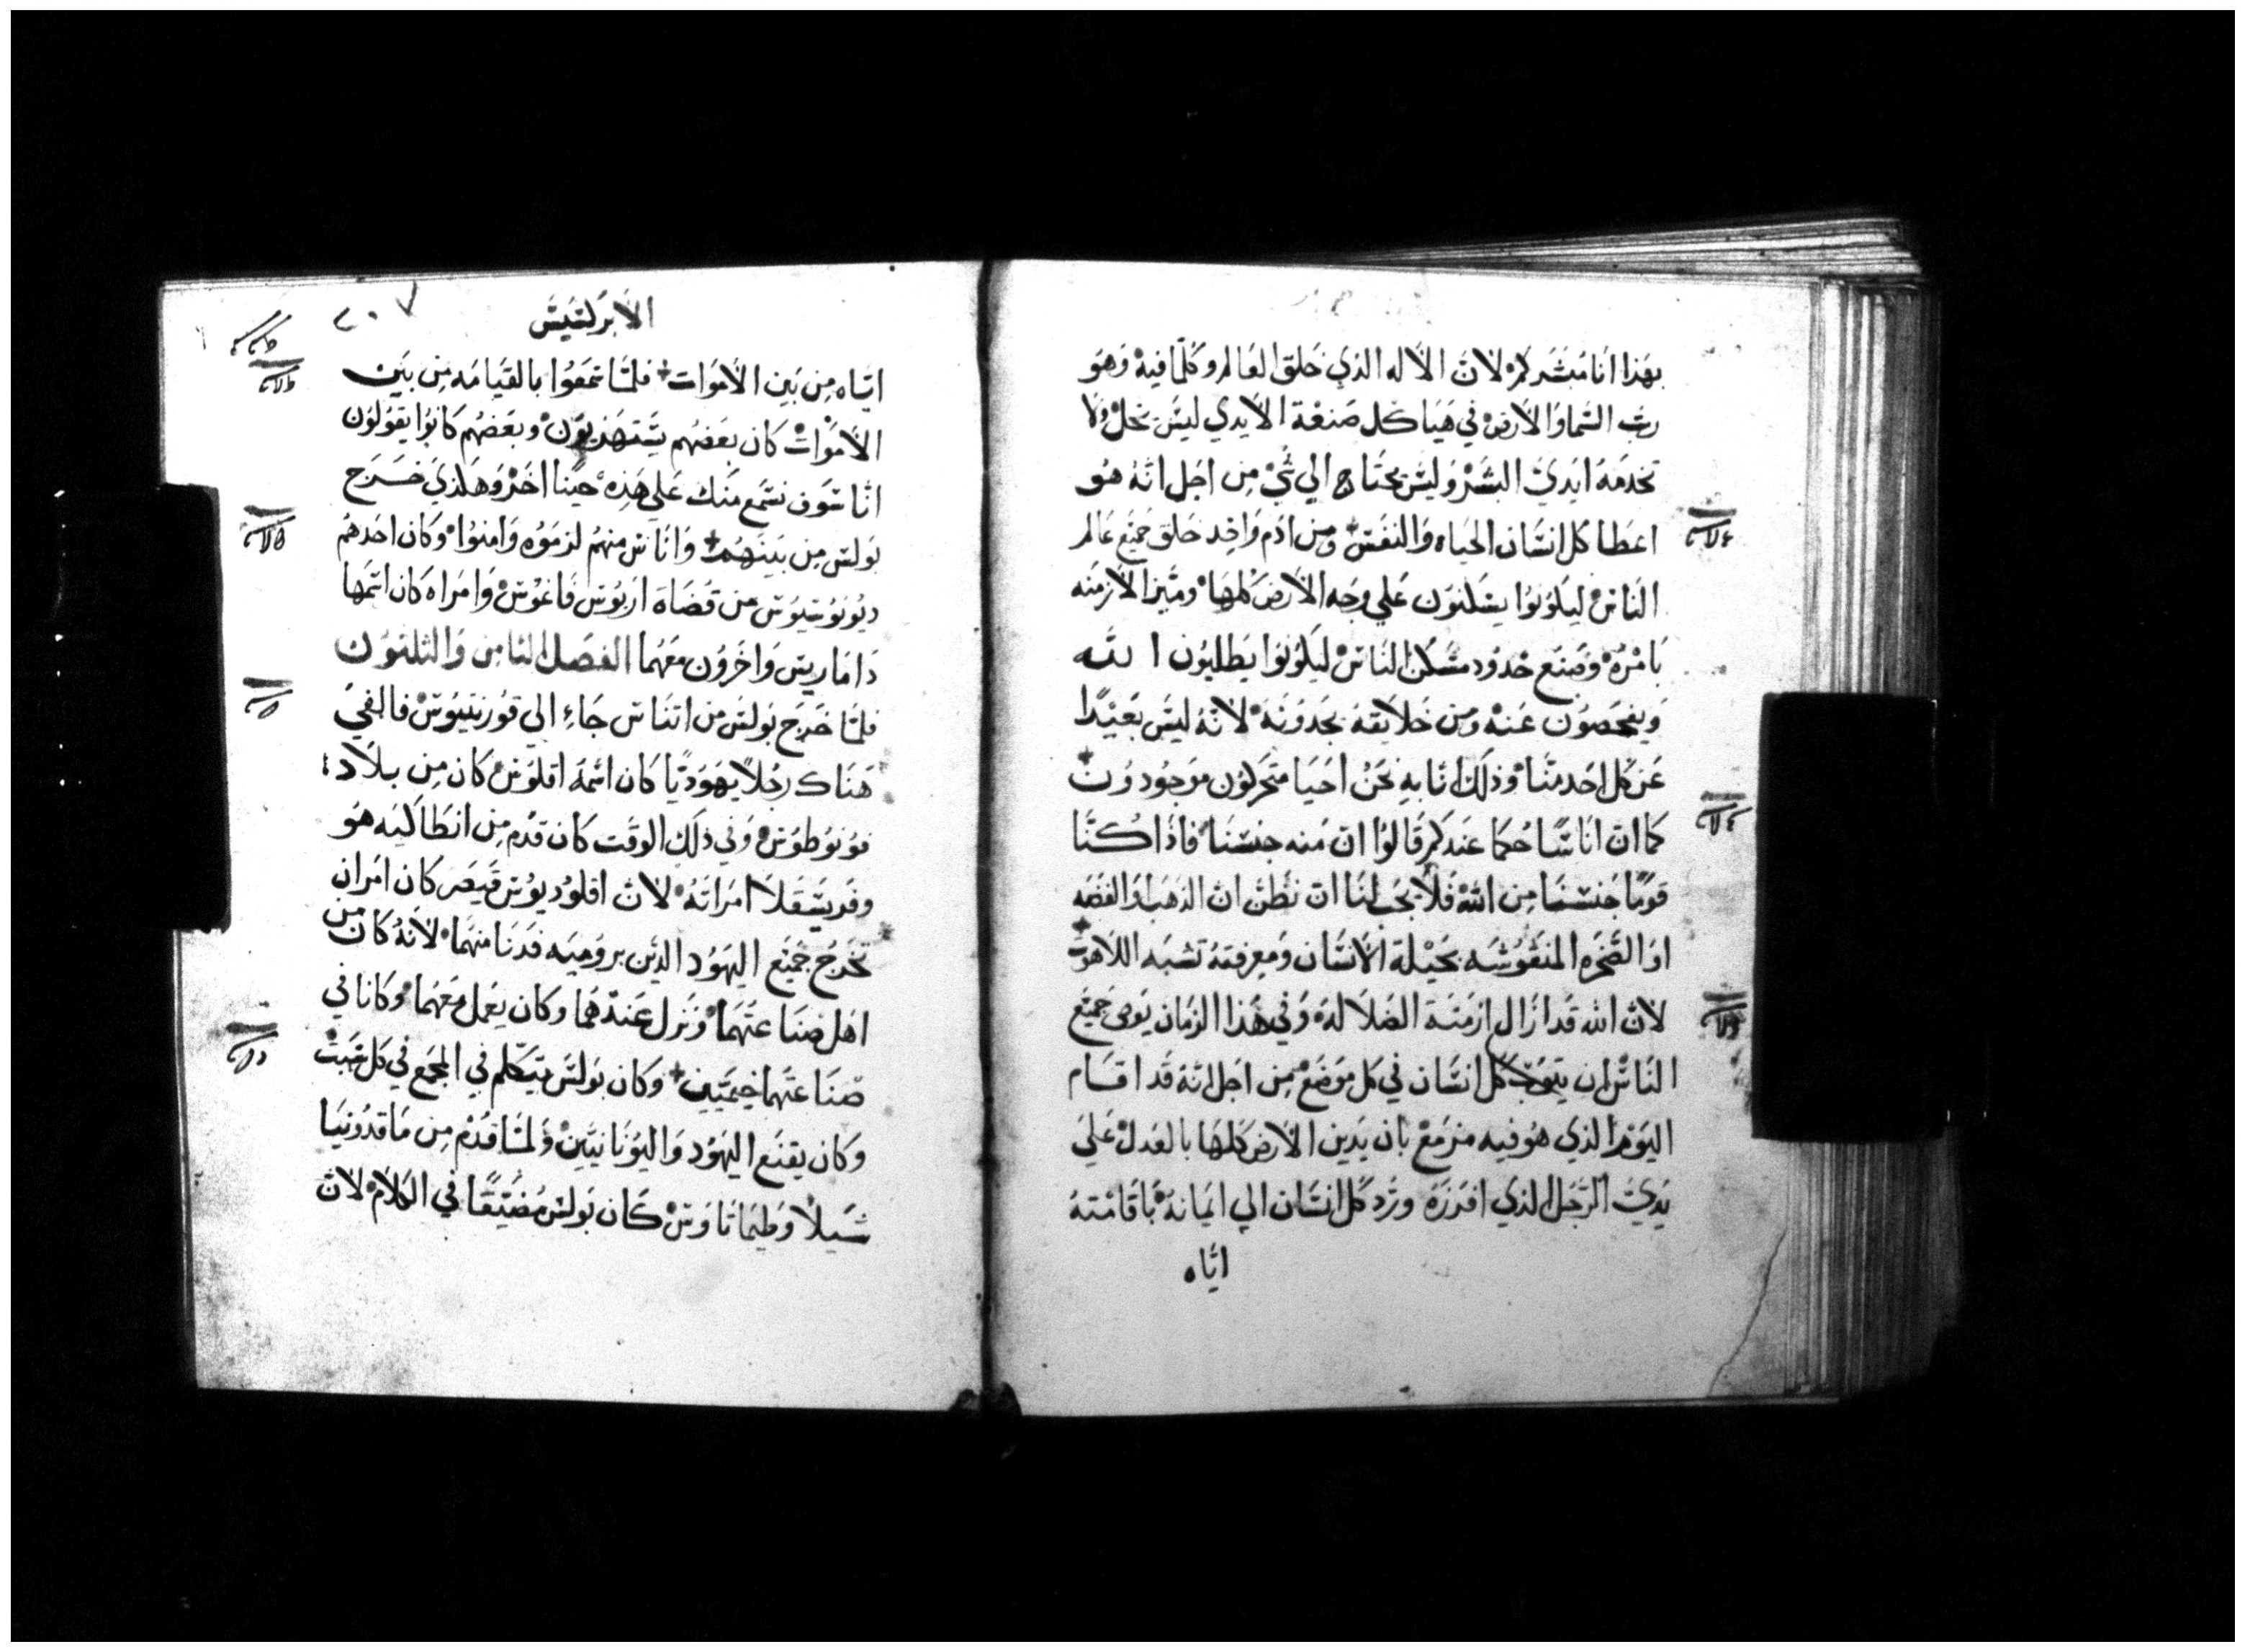 بهذا انا مبشركم لان الاله الذي خلق العالم وكلما فيه وهو
رب السما والارض في هياكل صنعة الايدي ليس يحل ولا
تخدمه ايدي البشر وليس يحتاج الي شي من اجل انه هو
اعطا كل انسان الحياه والنفس ومن ادم واحد خلق جميع عالم
الناس ليكونوا يسكنون علي وجه الارض كلها وميز الازمنه
بامره وصنع حدود مسكن الناس ليكونوا يطلبون الله
ويفحصون عنه ومن خلايقه يجدونه لانه ليس بعيدا
عن كل احد منا وذلك انا به نحن احيا متحركون موجودون
كما ان اناسا حكما عندكم قالوا ان منه جنسنا فاذا كنا
قوما جنسنا من الله فلا يجب لنا ان نظن ان الذهب او الفضه
او الصخره المنقوشه بحيلة الانسان ومعرفته تشبه اللاهوت
لان الله قد ازال ازمنة الضلاله وفي هذا الزمان يوصي جميع
الناس ان يتوب كل انسان في كل موضع من اجل انه قد اقام
اليوم الذي هو فيه مزمع بان يدين الارض كلها بالعدل علي
يدي الرجل الذي افرزه ورد كل انسان الي ايمانه باقامته
اياه
الابركسيس
٢٠٧
اياه من بين الاموات فلما سمعوا بالقيامه من بين
الاموات كان بعضهم يستهزيون وبعضهم كانوا يقولون
انا سوف نسمع منك علي هذه حينا اخر وهكذي خرج
بولس من بينهم واناس منهم لزموه وامنوا وكان احدهم
ديونوسيوس من قضاة اريوس فاغوس وامراه كان اسمها
داماريس واخرون معهما الفصل الثامن والثلثون
فلما خرج بولس من اتناس جاء الي قورنتيوس فالفي
هناك رجلا يهوديا كان اسمه اقلوس كان من بلاد
فونوطوس وفي ذلك الوقت كان قدم من انطاكيه هو
وفريسقلا امراته لان اقلوديوس قيصر كان امر ان
تخرج جميع اليهود الذين بروميه فدنا منهما لانه كان من
اهل صناعتهما ونزل عندهما وكان يعمل معهما وكانا في
صناعتهما خيميين وكان بولس يتكلم في المجمع في كل سبت
وكان يقنع اليهود واليونانيين ولما قدم من ماقدونيا
شيلا وطيماتاوس كان بولس مضيقا في الكلام لان